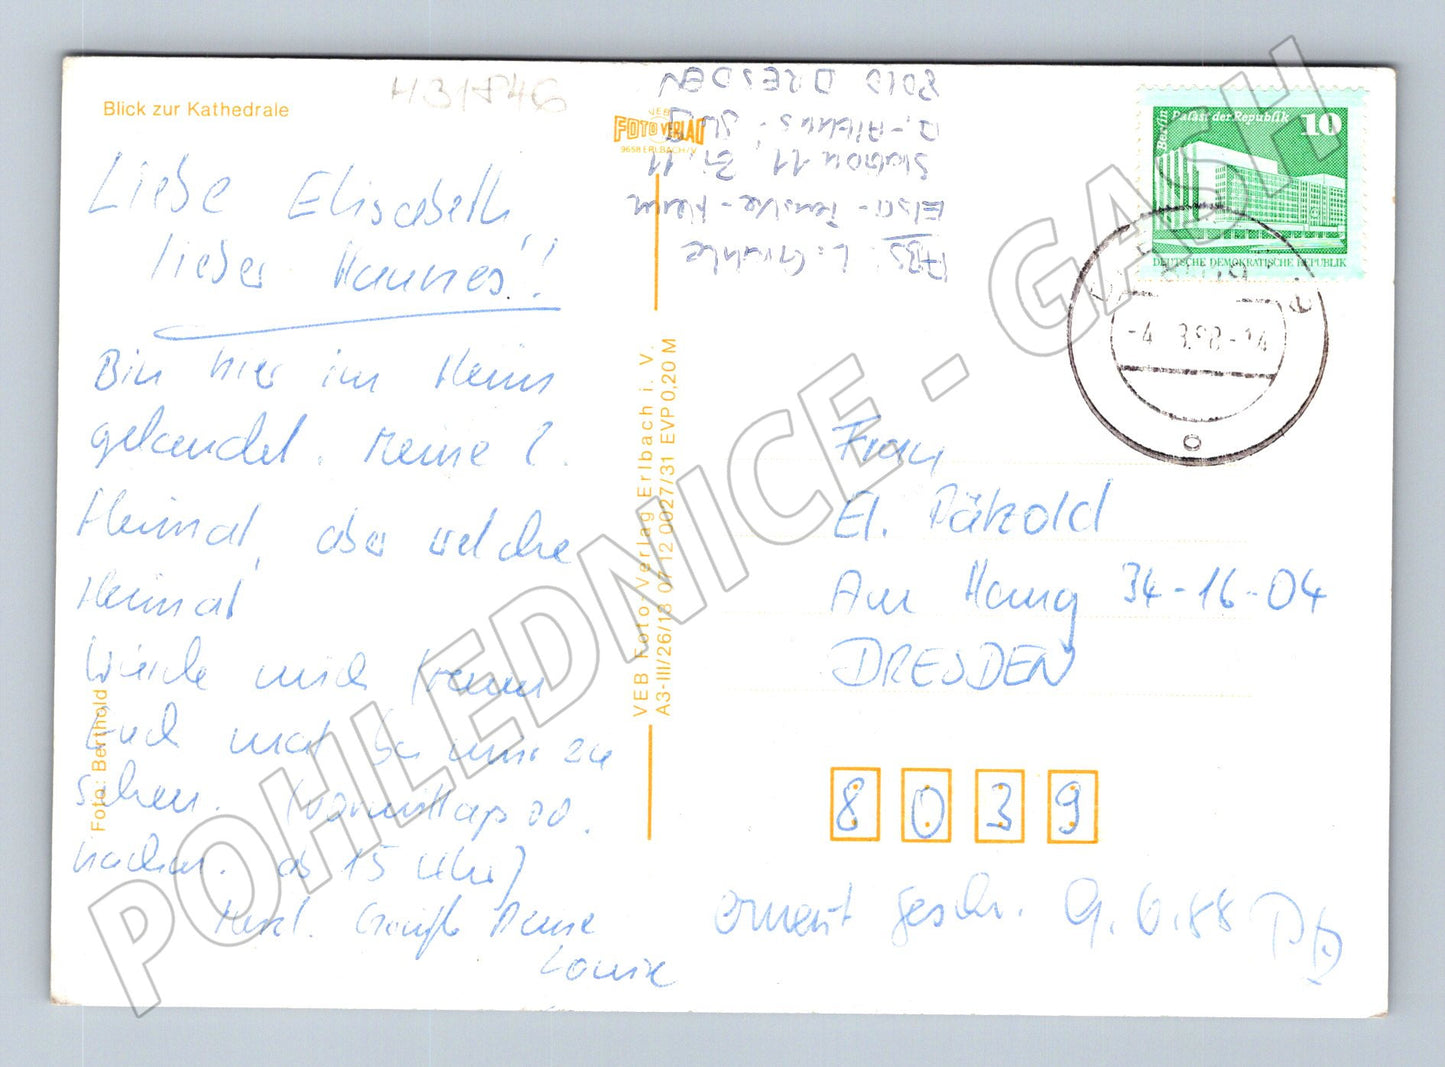 Blick zur Kathedrale
H31746
Liebe Elisabeth,
lieber Hannes!
Bin hier im Heim
gelandet. Meine 2.
Heimat, aber welche
Heimat
Würde mich freuen
Euch mal bei mir zu
sehen. (vormittags od.
nachm. ab 15 Uhr)
Herzl. Grüße Deine
Louise
Foto: Berthold
VEB
FOTO VERLAG
9658 ERLBACH/V
VEB Foto-Verlag Erlbach i. V.
A3-III/26/13 07 12 0027/31 EVP 0,20 M
Abs. L.
Elsa-Fenske-Heim
Station 11, Zi. 11
8010 DRESDEN
Berlin Palast der Republik 10
DEUTSCHE DEMOKRATISCHE REPUBLIK
-4. 3.88-14
Frau
El. Pätzold
Am Hang 34-16-04
DRESDEN
8039
erneut geschr. 9.6.88
POHLEDNICE - GASH